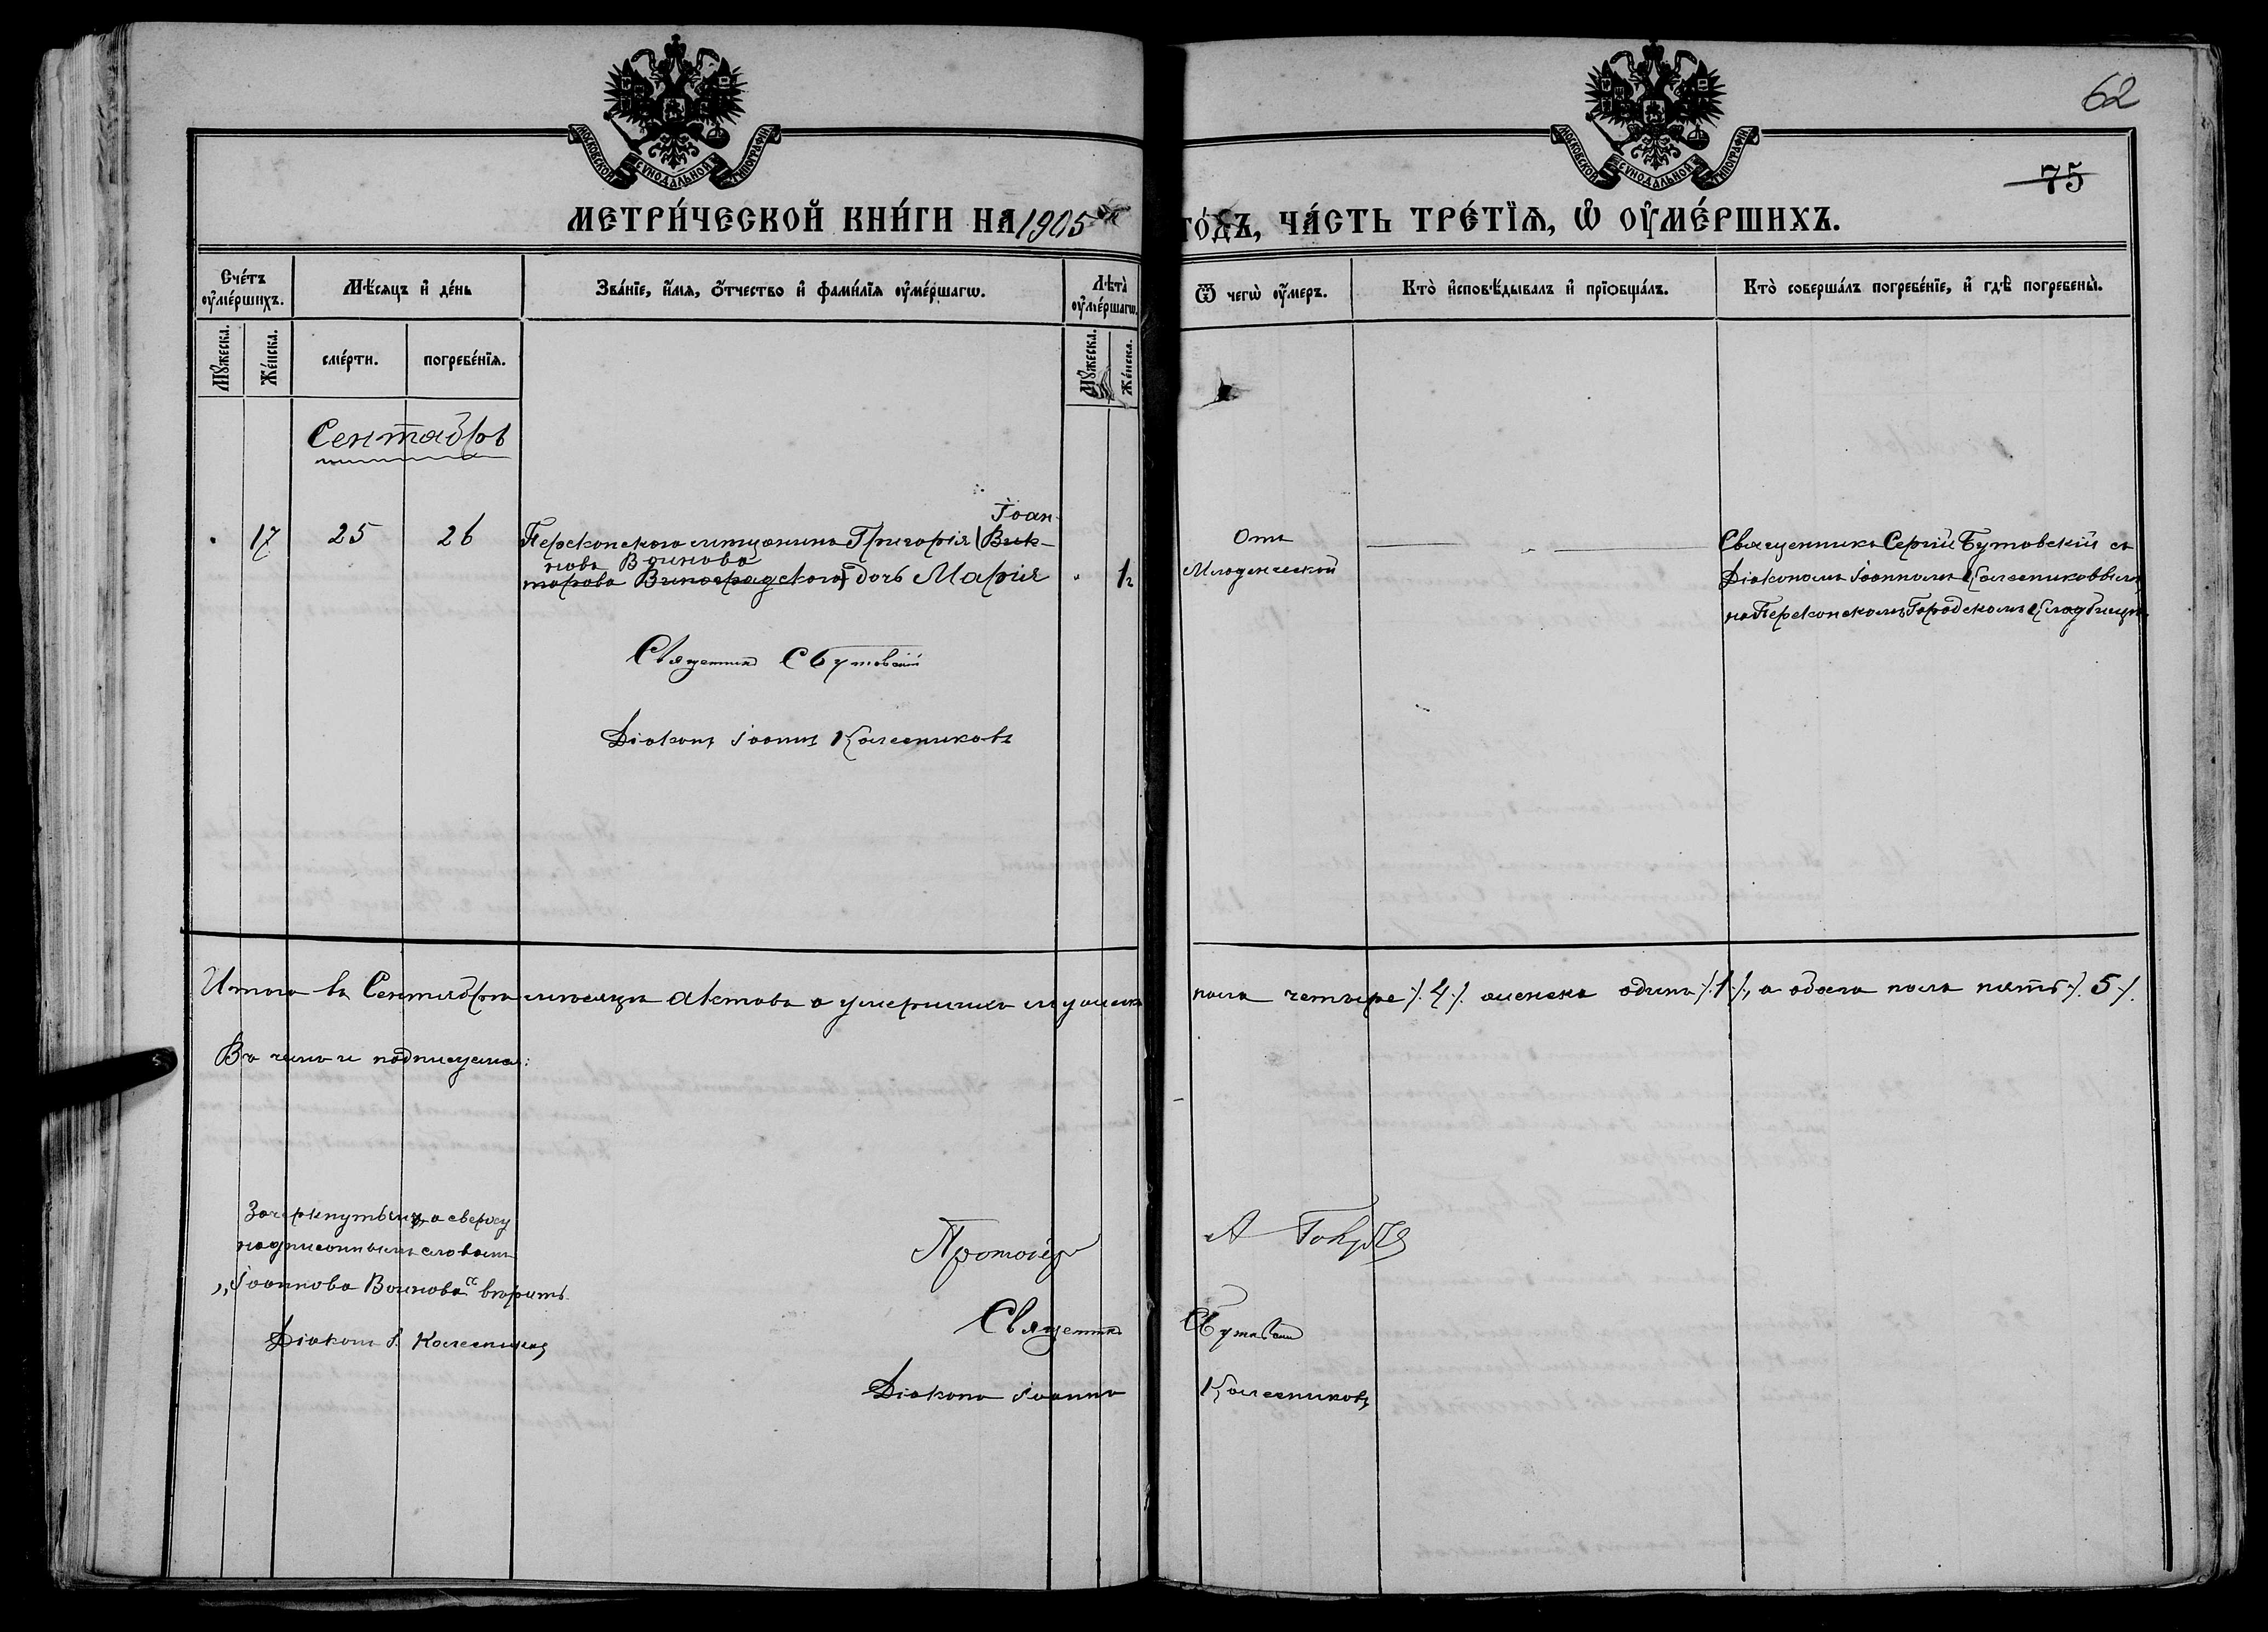 62
75
МОСКОВСКОЙ СѴНОДАЛЬНОЙ ТИПОГРАФІИ
МОСКОВСКОЙ СѴНОДАЛЬНОЙ ТИПОГРАФІИ
МЕТРИ́ЧЕСКОЙ КНИ́ГИ НА 1905 ГО́ДЪ, ЧА́СТЬ ТРЕ́ТЇѦ, Ѡ҆ ОУ҆МЕ́РШИХЪ.
Сче́тъ оу҆ме́ршихъ.
Мѣ́сяцъ и҆ де́нь
Зва́нїе, и҆́мя, ѻ҆́тчество и҆ фами́лїя оу҆ме́ршагѡ.
Лѣта̀ оу҆ме́ршагѡ.
Ѿ чегѡ̀ оу҆́меръ.
Кто̀ и҆сповѣ́дывалъ и҆ прїѡбща́лъ.
Кто̀ соверша́лъ погребе́нїе, и҆ гдѣ̀ погребены̀.
Мꙋ́жеска.
Же́нска.
сме́рти.
погребе́нїя.
Мꙋ́жеска.
Же́нска.
Сентябрь
Іоан-
17 25 26 Перекопскаго мѣщанина Григорія (Вик-
нова Воинова
торова Виноградскаго) дочь Марія
Отъ
Младенческой
Священникъ Сергій Бутовскій съ
Діакономъ Іоанномъ Колесниковымъ
на Перекопскомъ Городскомъ Кладбищѣ.
Священникъ С Бутовскій
Діаконъ Іоаннъ Колесниковъ
Итого въ Сентябрѣ мѣсяцѣ актовъ о умершихъ мужеска пола четыре /. 4 /. женска одинъ /. 1 /., а обоего пола пять /. 5 /.
Въ чемъ и подписуемся:
Зачеркнутымъ, а сверху
надписаннымъ словамъ
„Іоаннова Воинова“ вѣрить
Діаконъ І. Колесниковъ
Протоіер А
Священникъ С Бутовскій
Діаконъ Іоаннъ Колесниковъ